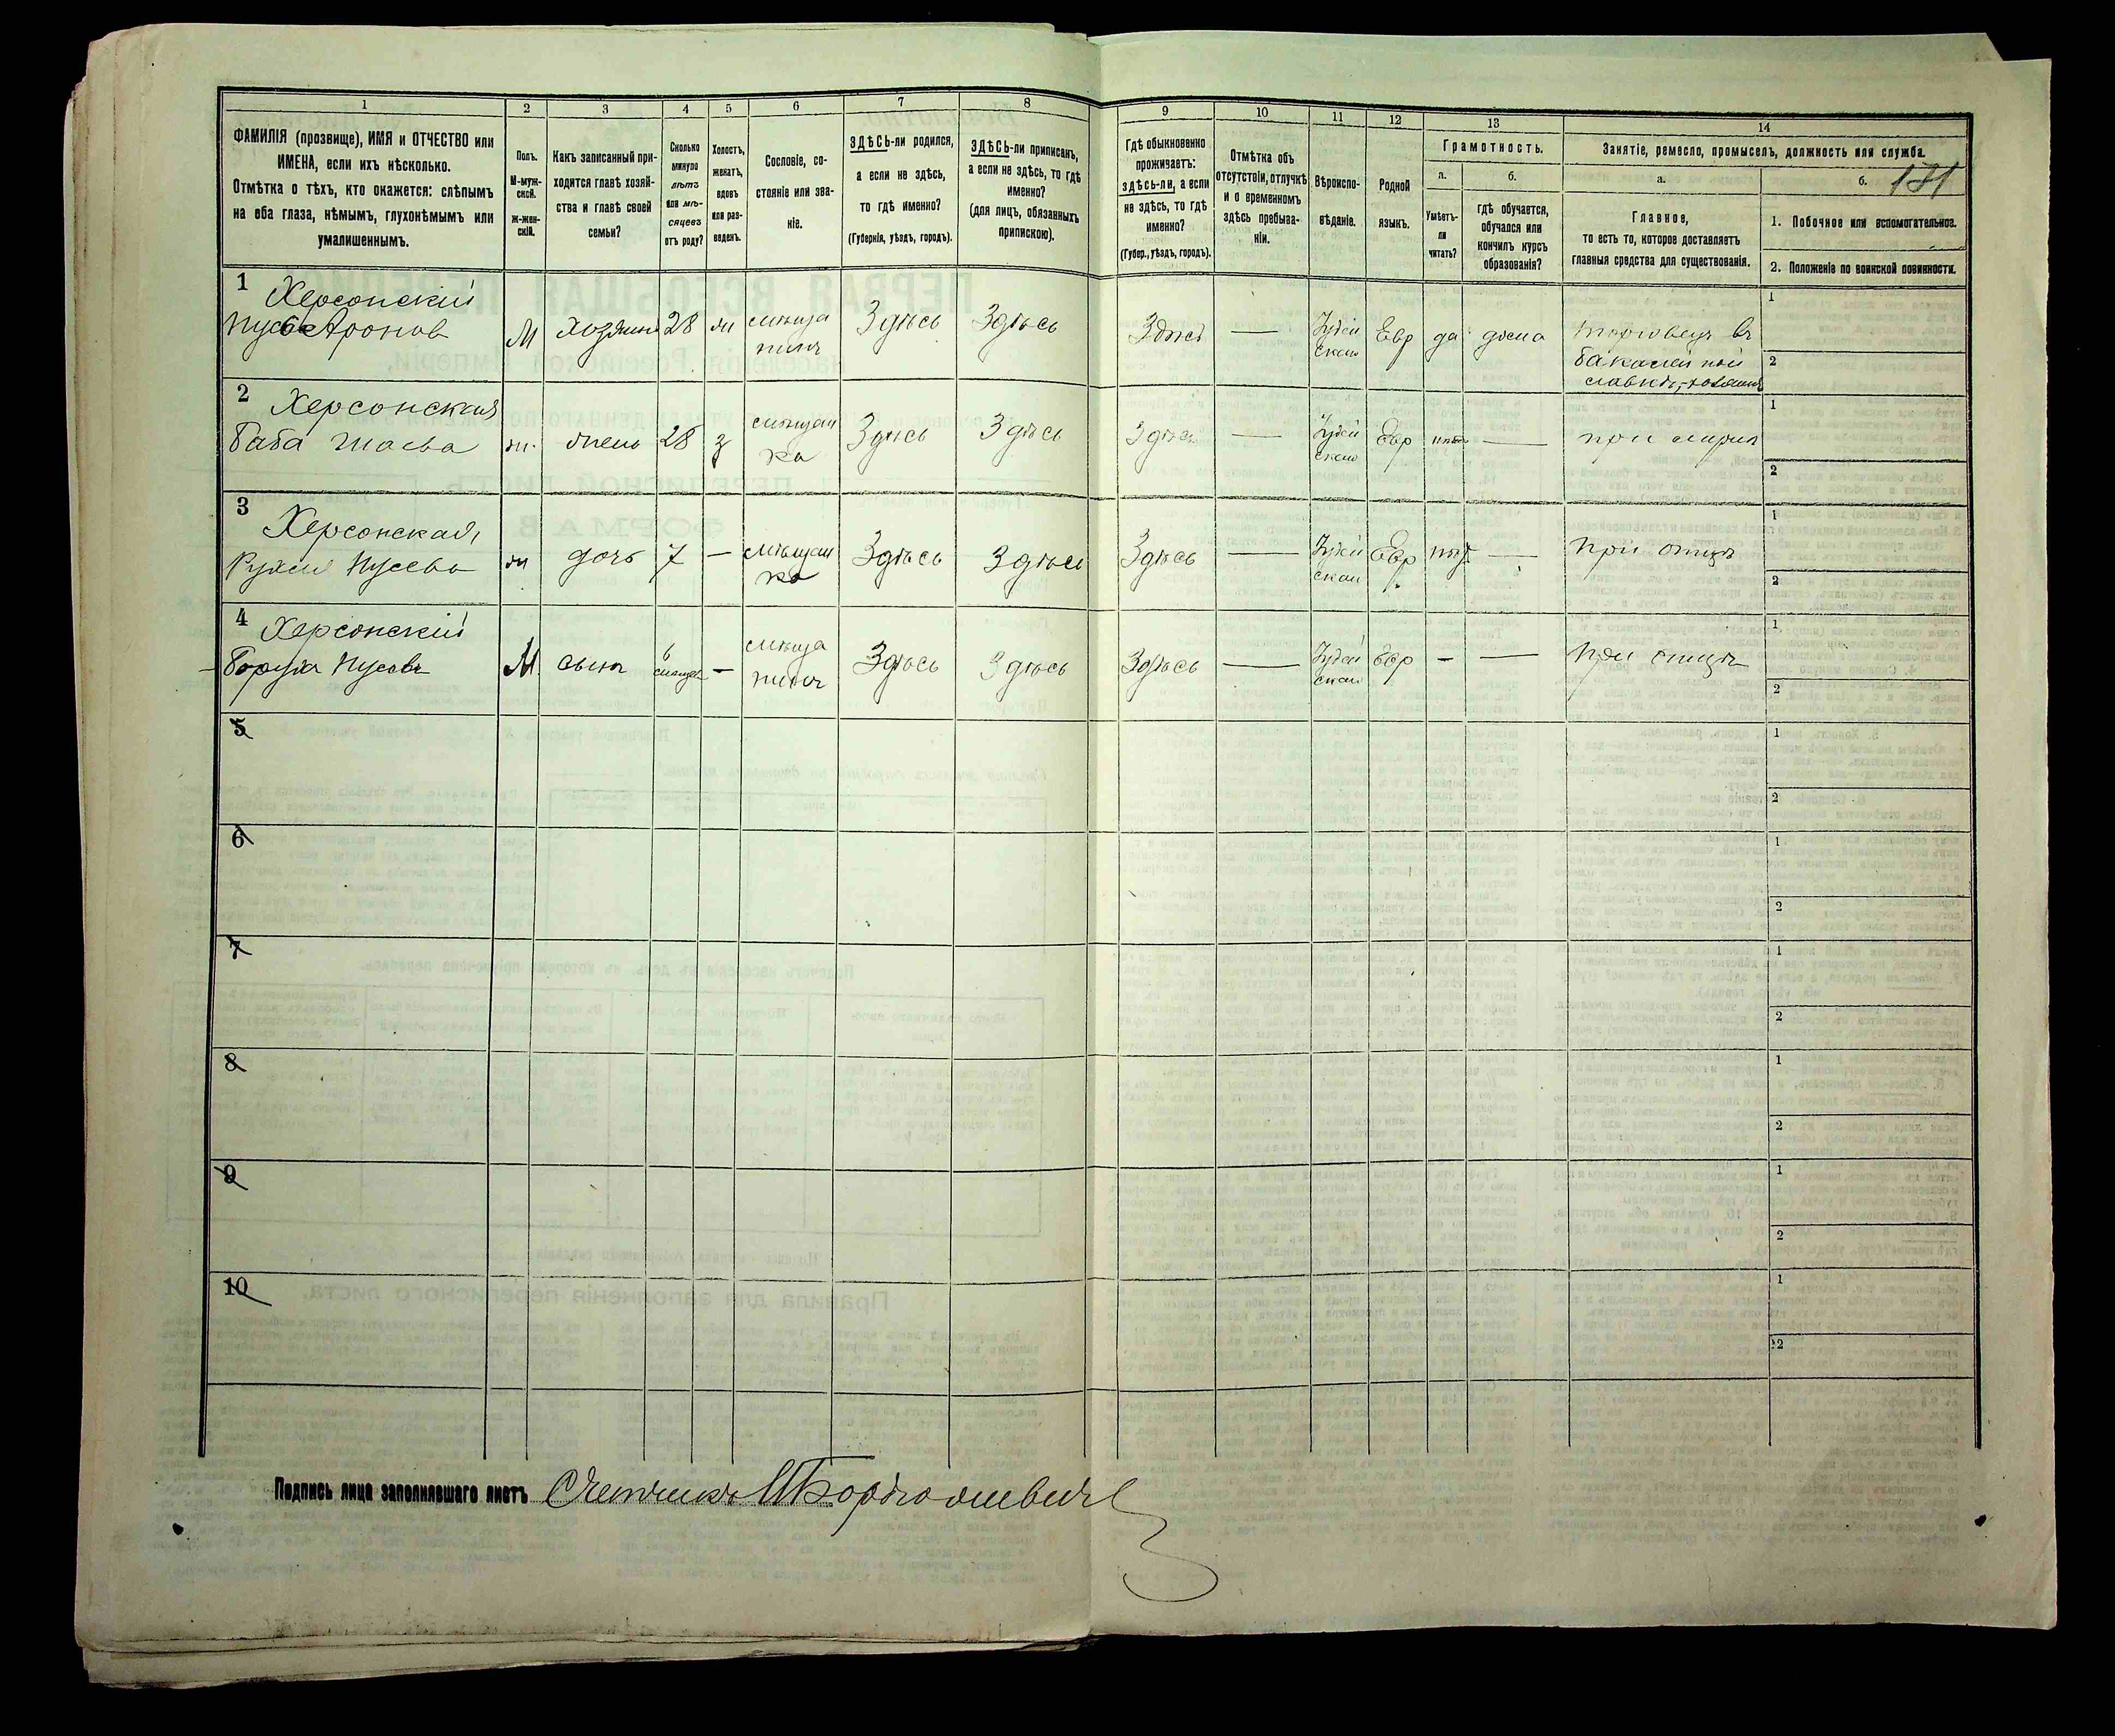 1 2 3 4 5 6 7 8 9 10 11 12 13 14
ФАМИЛІЯ (прозвище), ИМЯ и ОТЧЕСТВО или
ИМЕНА, если ихъ нѣсколько.
Отмѣтка о тѣхъ, кто окажется: слѣпымъ
на оба глаза, нѣмымъ, глухонѣмымъ или
умалишеннымъ.
Полъ.
М-муж-
ской.
ж-жен-
скій.
Какъ записанный при-
ходится главѣ хозяй-
ства и главѣ своей
семьи?
Сколько
минуло
лѣтъ
или мѣ-
сяцевъ
отъ роду?
Холостъ,
женатъ,
вдовъ
или раз-
веденъ.
Сословіе, со-
стояніе или зва-
ніе.
ЗДѢСЬ-ли родился,
а если не здѣсь,
то гдѣ именно?
(Губернія, уѣздъ, городъ).
ЗДѢСЬ-ли приписанъ,
а если не здѣсь, то гдѣ
именно?
(для лицъ, обязанныхъ
припискою).
Гдѣ обыкновенно
проживаетъ:
здѣсь-ли, а если
не здѣсь, то гдѣ
именно?
(Губер., уѣздъ, городъ).
Отмѣтка объ
отсутствіи, отлучкѣ
и о временномъ
здѣсь пребыва-
ніи.
Вѣроиспо-
вѣданіе.
Родной
языкъ.
Грамотность.
а.
Умѣетъ-
ли
читать?
б.
гдѣ обучается,
обучался или
кончилъ курсъ
образованія?
Занятіе, ремесло, промыселъ, должность или служба.
а.
Главное,
то есть то, которое доставляетъ
главныя средства для существованія.
б. 131
1. Побочное или вспомогательное.
2. Положеніе по воинской повинности.
1 Херсонскій
Нусъ Аронов
М
хозяинъ
28
ж
мѣща
нинъ
Здѣсь
Здѣсь
Здѣсь
—
Іудей
ское
Евр
да
дома
торговецъ въ
бакалейной
лавкѣ,
1
2
2 Херсонская
Баба
ж.
жена
28
з
мѣщан
ка
Здѣсь
Здѣсь
Здѣсь
—
Іудей
ское
Евр
нѣтъ
—
при мужѣ
1
2
3 Херсонская,
Нусева
ж
дочь
7
—
мѣщан
ка
Здѣсь
Здѣсь
Здѣсь
—
Іудей
ское
Евр
нѣт
—
при отцѣ
1
2
4 Херсонскій
Борухъ Нусевъ
М.
сынъ
6
мѣсяц.
—
мѣща
нинъ
Здѣсь
Здѣсь
Здѣсь
—
Іудей
ское
Евр
—
—
при отцѣ
1
2
5
1
2
6
1
2
7
1
2
8
1
2
9
1
2
10
1
2
Подпись лица заполнявшаго листъ Счетчикъ